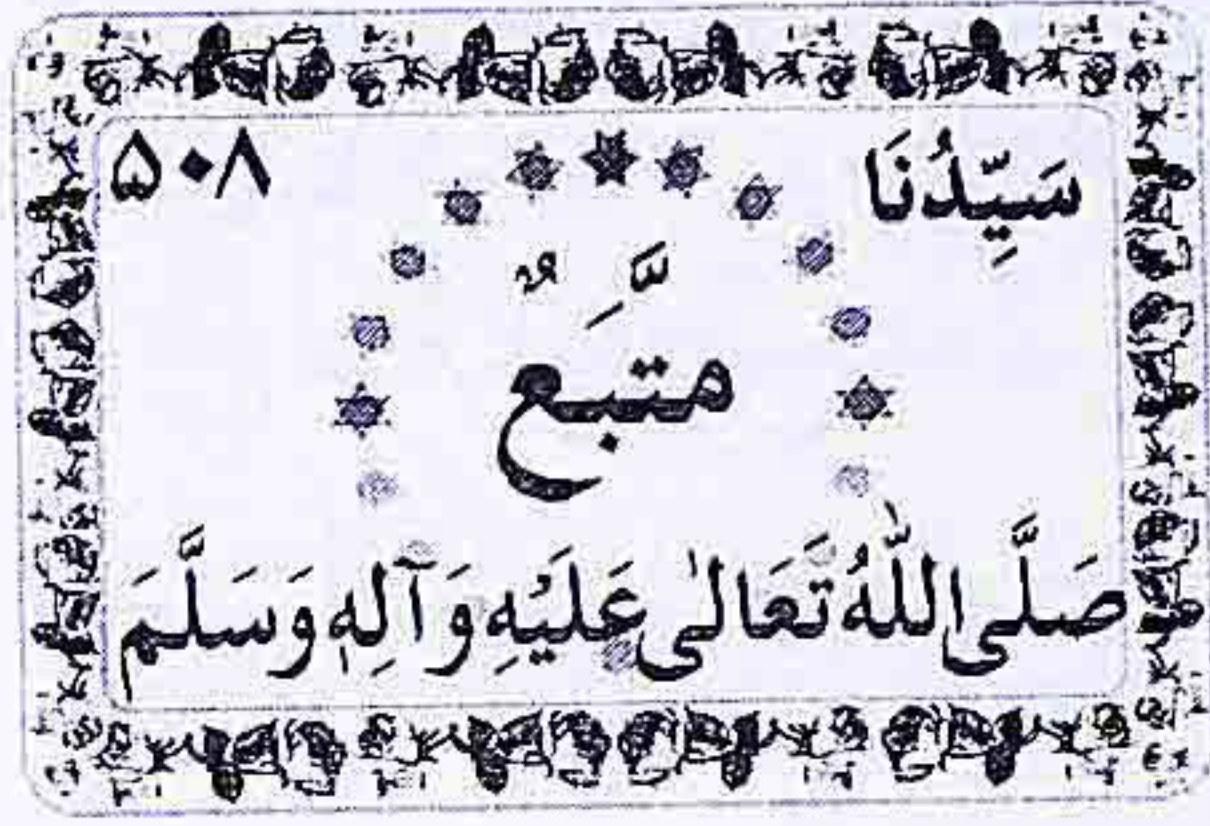 سَيِّدُنَا ۵۰۸
مُتَّبَعٌ
صَلَّى اللّٰهُ تَعَالٰى عَلَيْهِ وَآلِهٖ وَسَلَّمَ